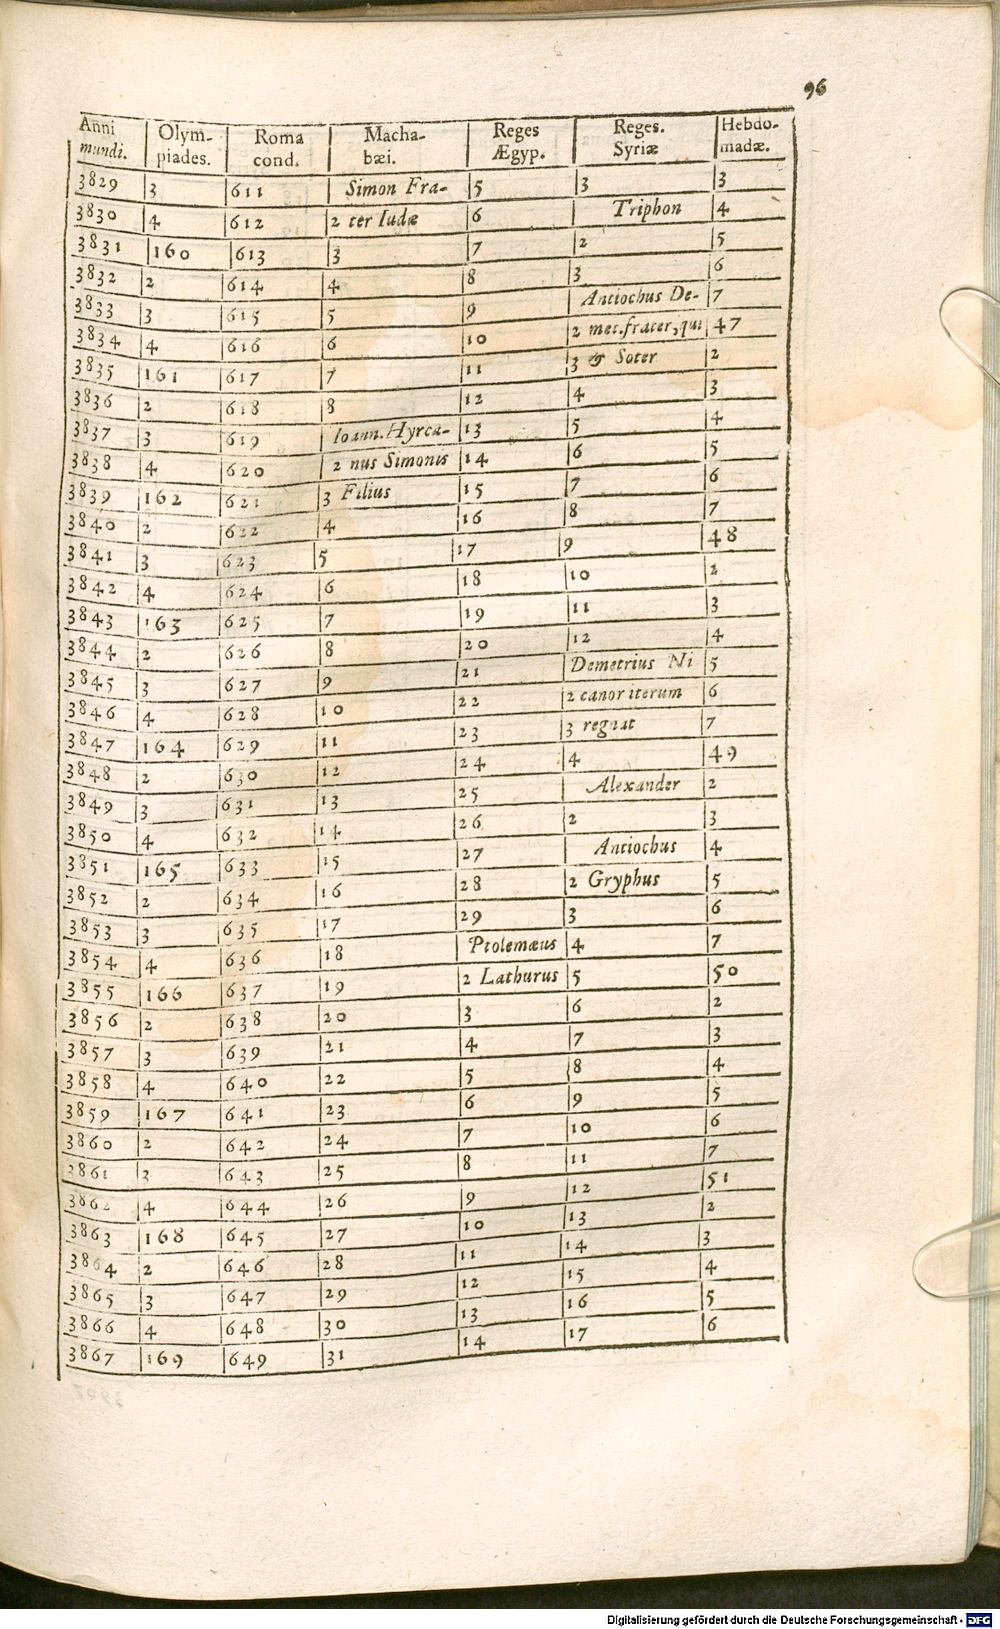 96
Anni mundi. Olym- piades. Roma cond. Macha- bæi. Reges Ægyp. Reges. Syriæ Hebdo- madæ.
3829 3 611 Simon Fra- 5 3 3
3830 4 612 2 ter Iudæ 6 Triphon 4
3831 160 613 3 7 2 5
3832 2 614 4 8 3 6
3833 3 615 5 9 Antiochus De- 7
3834 4 616 6 10 2 met. frater, qui 47
3835 161 617 7 11 3 & Soter 2
3836 2 618 8 12 4 3
3837 3 619 Ioann. Hyrca- 13 5 4
3838 4 620 2 nus Simonis 14 6 5
3839 162 621 3 Filius 15 7 6
3840 2 622 4 16 8 7
3841 3 623 5 17 9 48
3842 4 624 6 18 10 2
3843 163 625 7 19 11 3
3844 2 626 8 20 12 4
3845 3 627 9 21 Demetrius Ni 5
3846 4 628 10 22 2 canor iterum 6
3847 164 629 11 23 3 regnat 7
3848 2 630 12 24 4 49
3849 3 631 13 25 Alexander 2
3850 4 632 14 26 2 3
3851 165 633 15 27 Antiochus 4
3852 2 634 16 28 2 Gryphus 5
3853 3 635 17 29 3 6
3854 4 636 18 Ptolemæus 4 7
3855 166 637 19 2 Lathurus 5 50
3856 2 638 20 3 6 2
3857 3 639 21 4 7 3
3858 4 640 22 5 8 4
3859 167 641 23 6 9 5
3860 2 642 24 7 10 6
3861 3 643 25 8 11 7
3862 4 644 26 9 12 51
3863 168 645 27 10 13 2
3864 2 646 28 11 14 3
3865 3 647 29 12 15 4
3866 4 648 30 13 16 5
3867 169 649 31 14 17 6
Digitalisierung gefördert durch die Deutsche Forschungsgemeinschaft - DFG